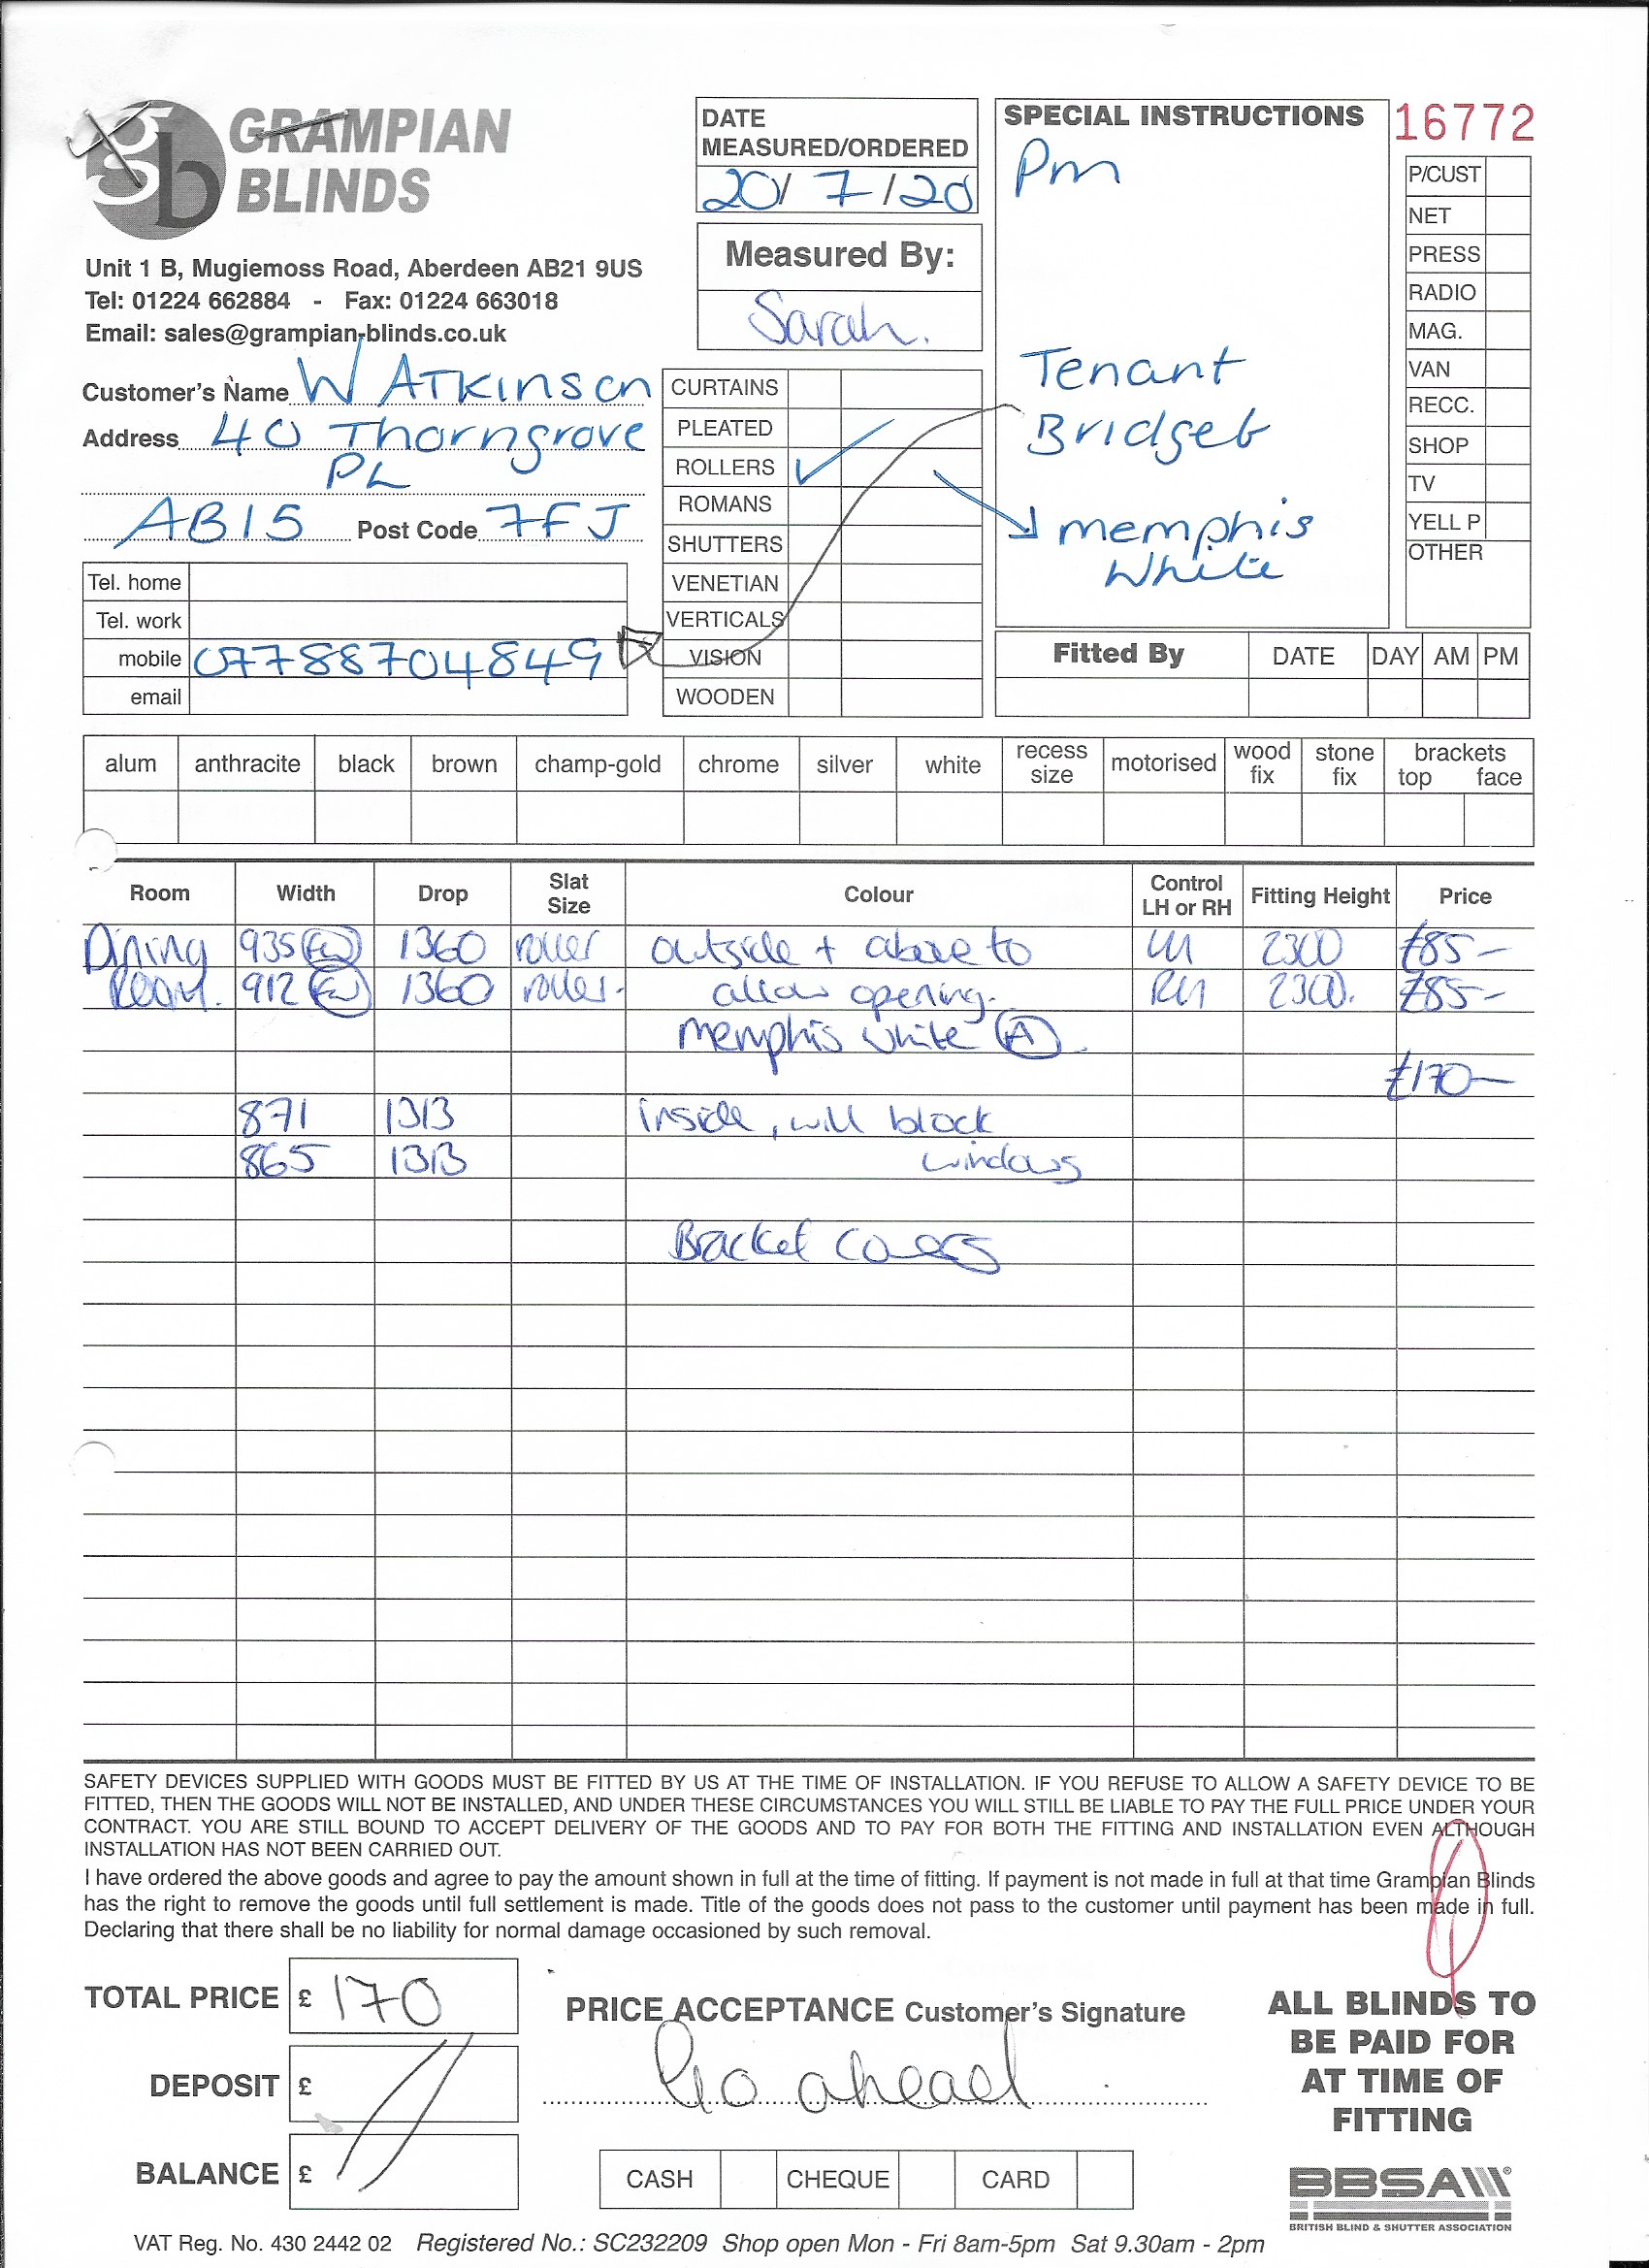 GRAMPIAN
BLINDS
Unit 1 B, Mugiemoss Road, Aberdeen AB21 9US
Tel: 01224 662884 - Fax: 01224 663018
Email: sales@grampian-blinds.co.uk
Customer's Name W ATKinson
Address 40 Thorngrove
PL
AB15 Post Code 7FJ
Tel. home
Tel. work
mobile 07788704849
email
DATE
MEASURED/ORDERED
20/7/20
Measured By:
Sarah.
CURTAINS
PLEATED
ROLLERS ✓
ROMANS
SHUTTERS
VENETIAN
VERTICALS
VISION
WOODEN
SPECIAL INSTRUCTIONS
Pm
Tenant
Bridget
memphis
White
16772
P/CUST
NET
PRESS
RADIO
MAG.
VAN
RECC.
SHOP
TV
YELL P
OTHER
Fitted By DATE DAY AM PM
alum anthracite black brown champ-gold chrome silver white recess size motorised wood fix stone fix brackets top face
Room Width Drop Slat Size Colour Control LH or RH Fitting Height Price
Dining 935 1360 roller outside + above to LH 2300 £85-
Room. 912 1360 roller. allow opening. RH 2300. £85-
memphis white (A)
£170-
871 1313 inside, will block
865 1313 windows
Bracket covers
SAFETY DEVICES SUPPLIED WITH GOODS MUST BE FITTED BY US AT THE TIME OF INSTALLATION. IF YOU REFUSE TO ALLOW A SAFETY DEVICE TO BE
FITTED, THEN THE GOODS WILL NOT BE INSTALLED, AND UNDER THESE CIRCUMSTANCES YOU WILL STILL BE LIABLE TO PAY THE FULL PRICE UNDER YOUR
CONTRACT. YOU ARE STILL BOUND TO ACCEPT DELIVERY OF THE GOODS AND TO PAY FOR BOTH THE FITTING AND INSTALLATION EVEN ALTHOUGH
INSTALLATION HAS NOT BEEN CARRIED OUT.
I have ordered the above goods and agree to pay the amount shown in full at the time of fitting. If payment is not made in full at that time Grampian Blinds
has the right to remove the goods until full settlement is made. Title of the goods does not pass to the customer until payment has been made in full.
Declaring that there shall be no liability for normal damage occasioned by such removal.
TOTAL PRICE £ 170
DEPOSIT £
BALANCE £
PRICE ACCEPTANCE Customer's Signature
Go ahead
CASH CHEQUE CARD
ALL BLINDS TO
BE PAID FOR
AT TIME OF
FITTING
BBSA
BRITISH BLIND & SHUTTER ASSOCIATION
VAT Reg. No. 430 2442 02 Registered No.: SC232209 Shop open Mon - Fri 8am-5pm Sat 9.30am - 2pm